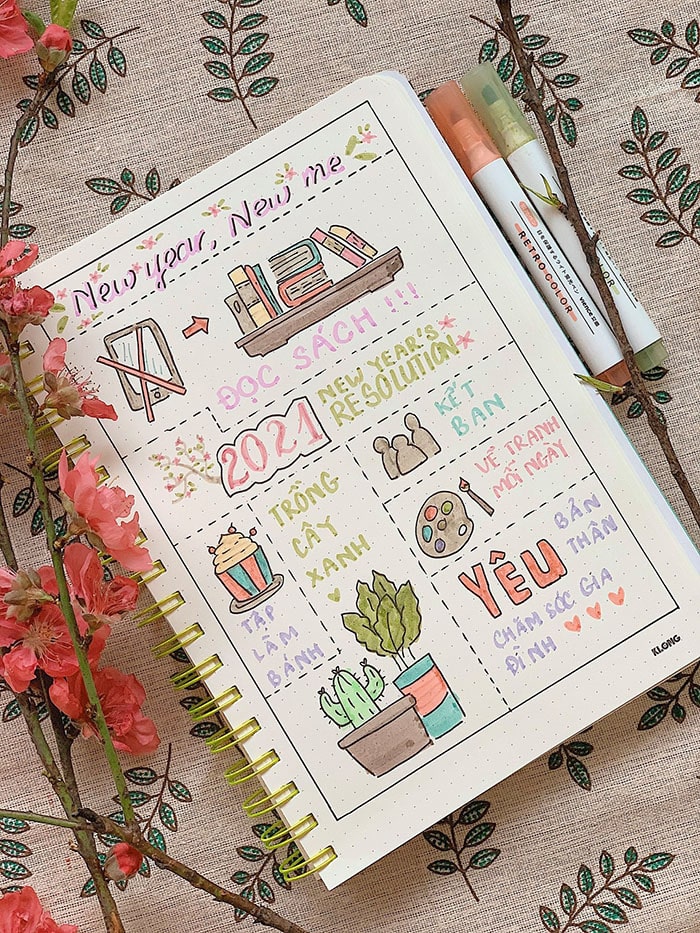 New year, New me
ĐỌC SÁCH !!!
2021
NEW YEAR'S
RESOLUTION
KẾT
BẠN
VẼ TRANH
MỖI NGÀY
TRỒNG
CÂY
XANH
TẬP
LÀM
BÁNH
YÊU
BẢN
THÂN
CHĂM SÓC GIA
ĐÌNH
KLONG
RETRO COLOR